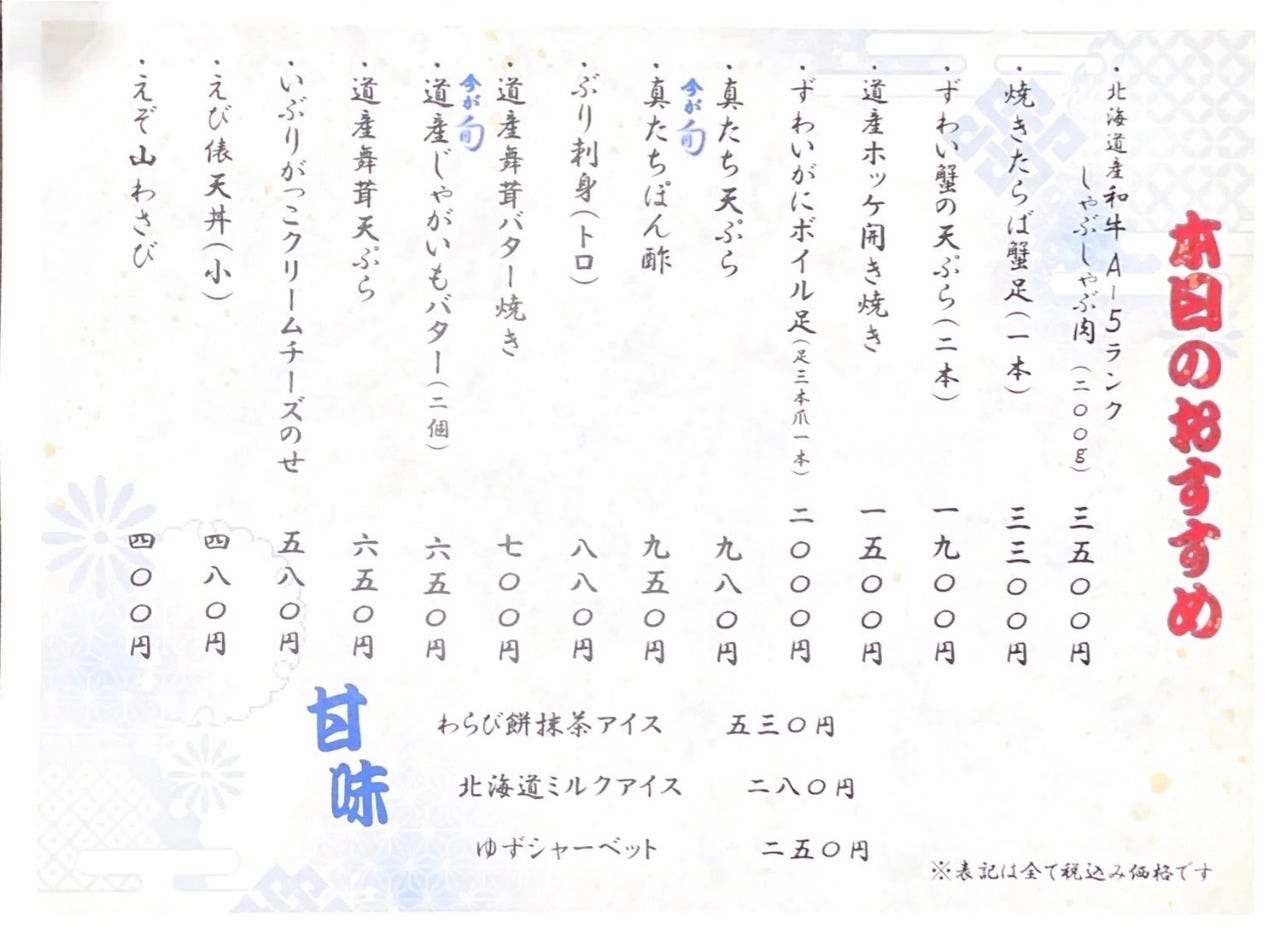 本日のおすすめ
・北海道産和牛A-5ランク
しゃぶしゃぶ肉(二〇〇g) 三五〇〇円
・焼きたらば蟹足(一本) 三三〇〇円
・ずわい蟹の天ぷら(二本) 一九〇〇円
・道産ホッケ開き焼き 一五〇〇円
・ずわいがにボイル足(足三本爪一本) 二〇〇〇円
・真たち天ぷら 九八〇円
今が旬
・真たちぽん酢 九五〇円
・ぶり刺身(トロ) 八八〇円
・道産舞茸バター焼き 七〇〇円
今が旬
・道産じゃがいもバター(二個) 六五〇円
・道産舞茸天ぷら 六五〇円
・いぶりがっこクリームチーズのせ 五八〇円
・えび俵天丼(小) 四八〇円
・えぞ山わさび 四〇〇円
甘味
わらび餅抹茶アイス 五三〇円
北海道ミルクアイス 二八〇円
ゆずシャーベット 二五〇円
※表記は全て税込み価格です